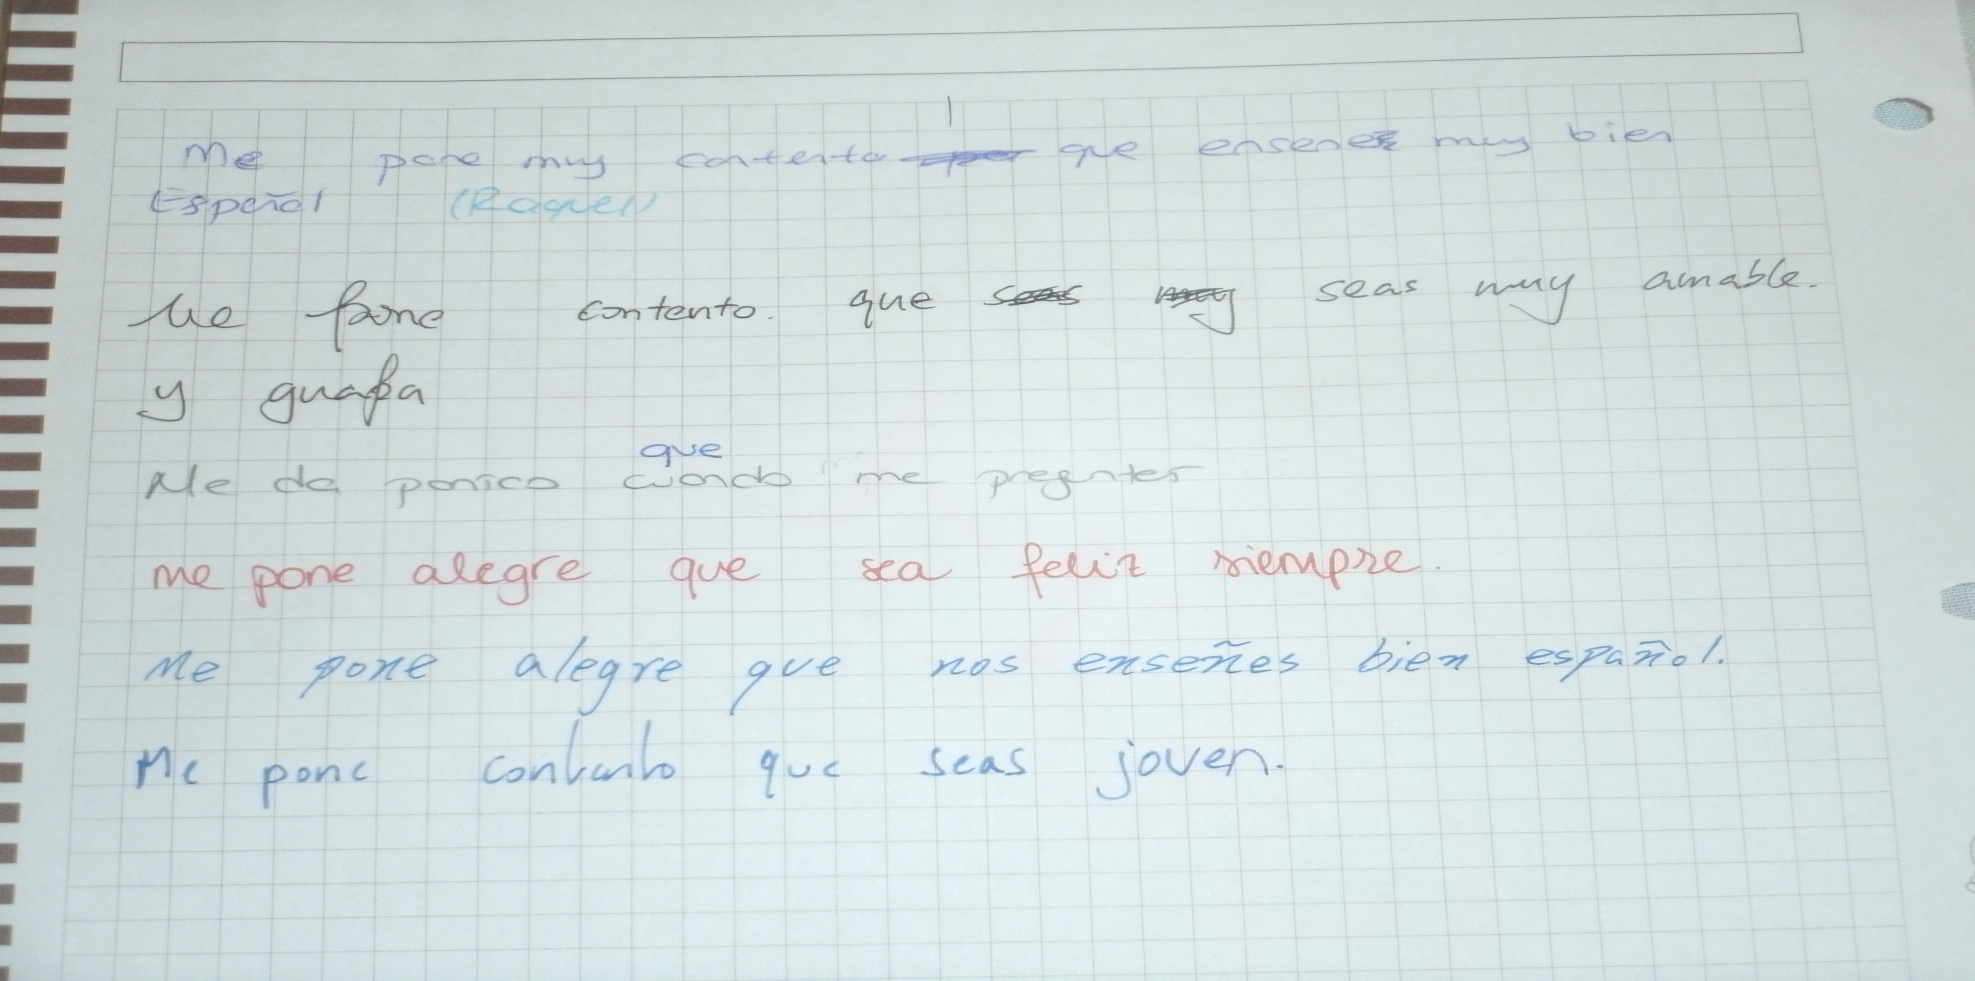 Me pone muy contento que enseñes muy bien
Español (Raquel)
Me pone contento. que seas muy amable.
y guapa
que
Me da panico cuando me preguntes
me pone alegre que sea feliz siempre.
Me pone alegre que nos enseñes bien español.
Me pone contento que seas joven.